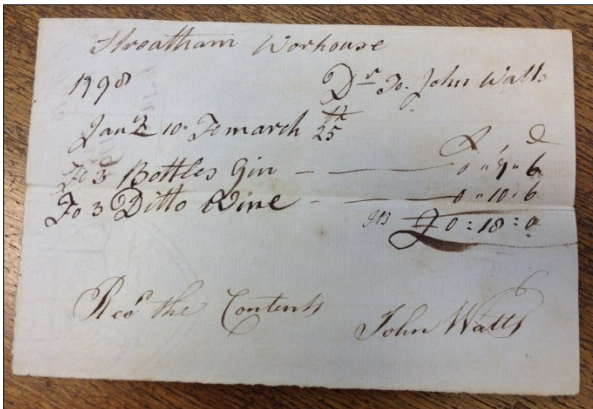 Streatham Worhouse
1798 Dr To John Watts
Jany 10 To march 25th
£ s D
To 3 Bottles Gin — — 0 " 7 " 6
To 3 Ditto Wine — — 0 " 10 " 6
£ 0 : 18 : 0
Recd the Contents
John Watts